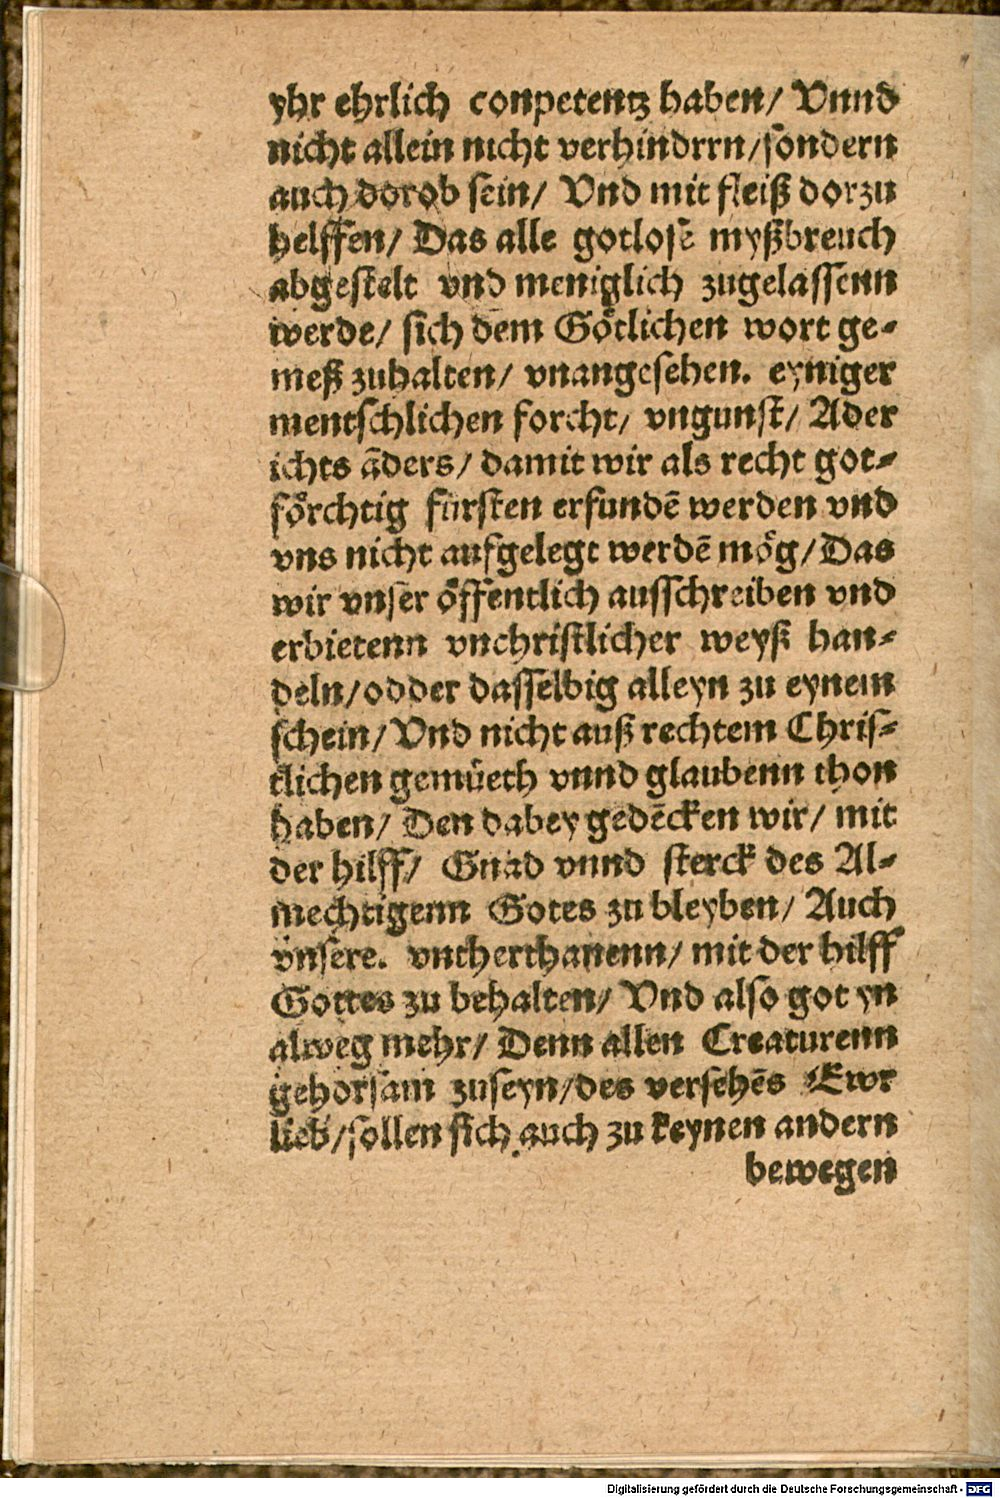 yhr ehrlich conpetentz haben/ Vnnd
nicht allein nicht verhindrrn/sondern
auch dorob sein/ Vnd mit fleiß dorzu
helffen/ Das alle gotlose myßbreuch
abgestelt vnd meniglich zugelassenn
werde/ sich dem Götlichen wort ge⸗
meß zuhalten/ vnangesehen. eyniger
mentschlichen forcht/ vngunst/ Ader
ichts āders/ damit wir als recht got⸗
förchtig fürsten erfundē werden vnd
vns nicht aufgelegt werdē mög/Das
wir vnser öffentlich ausschreiben vnd
erbietenn vnchristlicher weyß han⸗
deln/odder dasselbig alleyn zu eynem
schein/ Vnd nicht auß rechtem Chris⸗
tlichen gemüeth vnnd glaubenn thon
haben/ Den dabey gedēcken wir/ mit
der hilff/ Gnad vnnd sterck des Al⸗
mechtigenn Gotes zu bleyben/ Auch
vnsere. vntherthanenn/ mit der hilff
Gottes zu behalten/ Vnd also got yn
alweg mehr/ Denn allen Creaturenn
gehorsam zuseyn/des versehēs Ewr
lieb/sollen sich auch zu keynen andern
bewegen
Digitalisierung gefördert durch die Deutsche Forschungsgemeinschaft - DFG